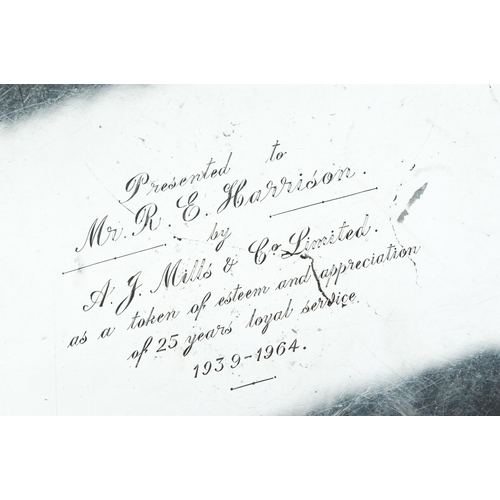 Presented to
Mr. R. E. Harrison.
by
A. J. Mills & Co. Limited.
as a token of esteem and appreciation
of 25 years loyal service.
1939-1964.